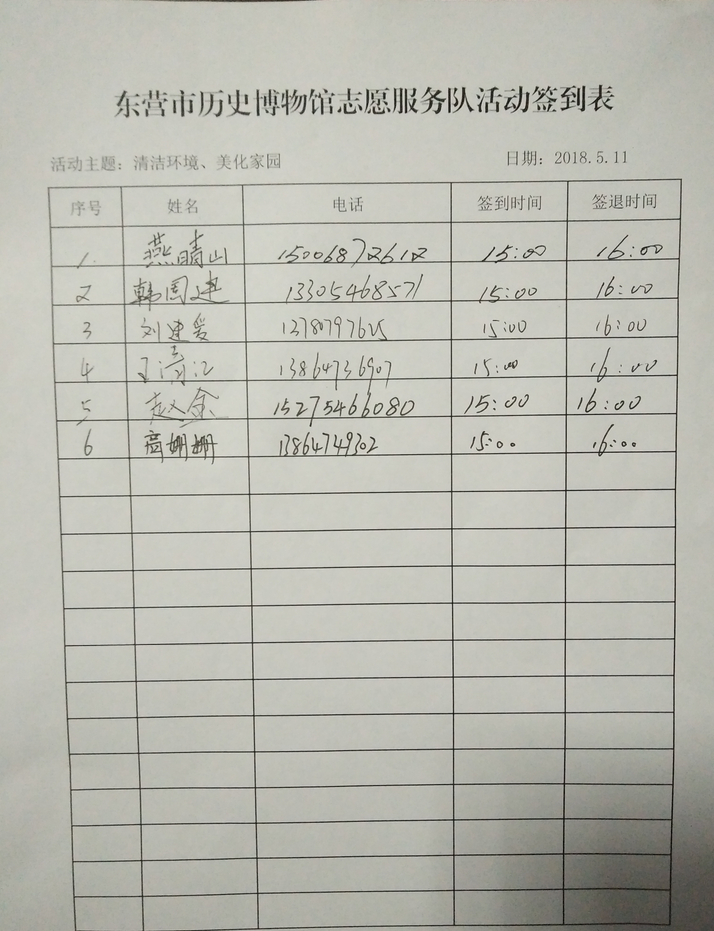 东营市历史博物馆志愿服务队活动签到表
活动主题：清洁环境、美化家园 日期：2018.5.11
序号 姓名 电话 签到时间 签退时间
1. 燕晴山 15006872612 15:00 16:00
2 韩国建 13305468571 15:00 16:00
3 刘建爱 15:00 16:00
4 王清江 13864736907 15:00 16:00
5 赵余 15275466080 15:00 16:00
6 高姗姗 13864749302 15:00 16:00